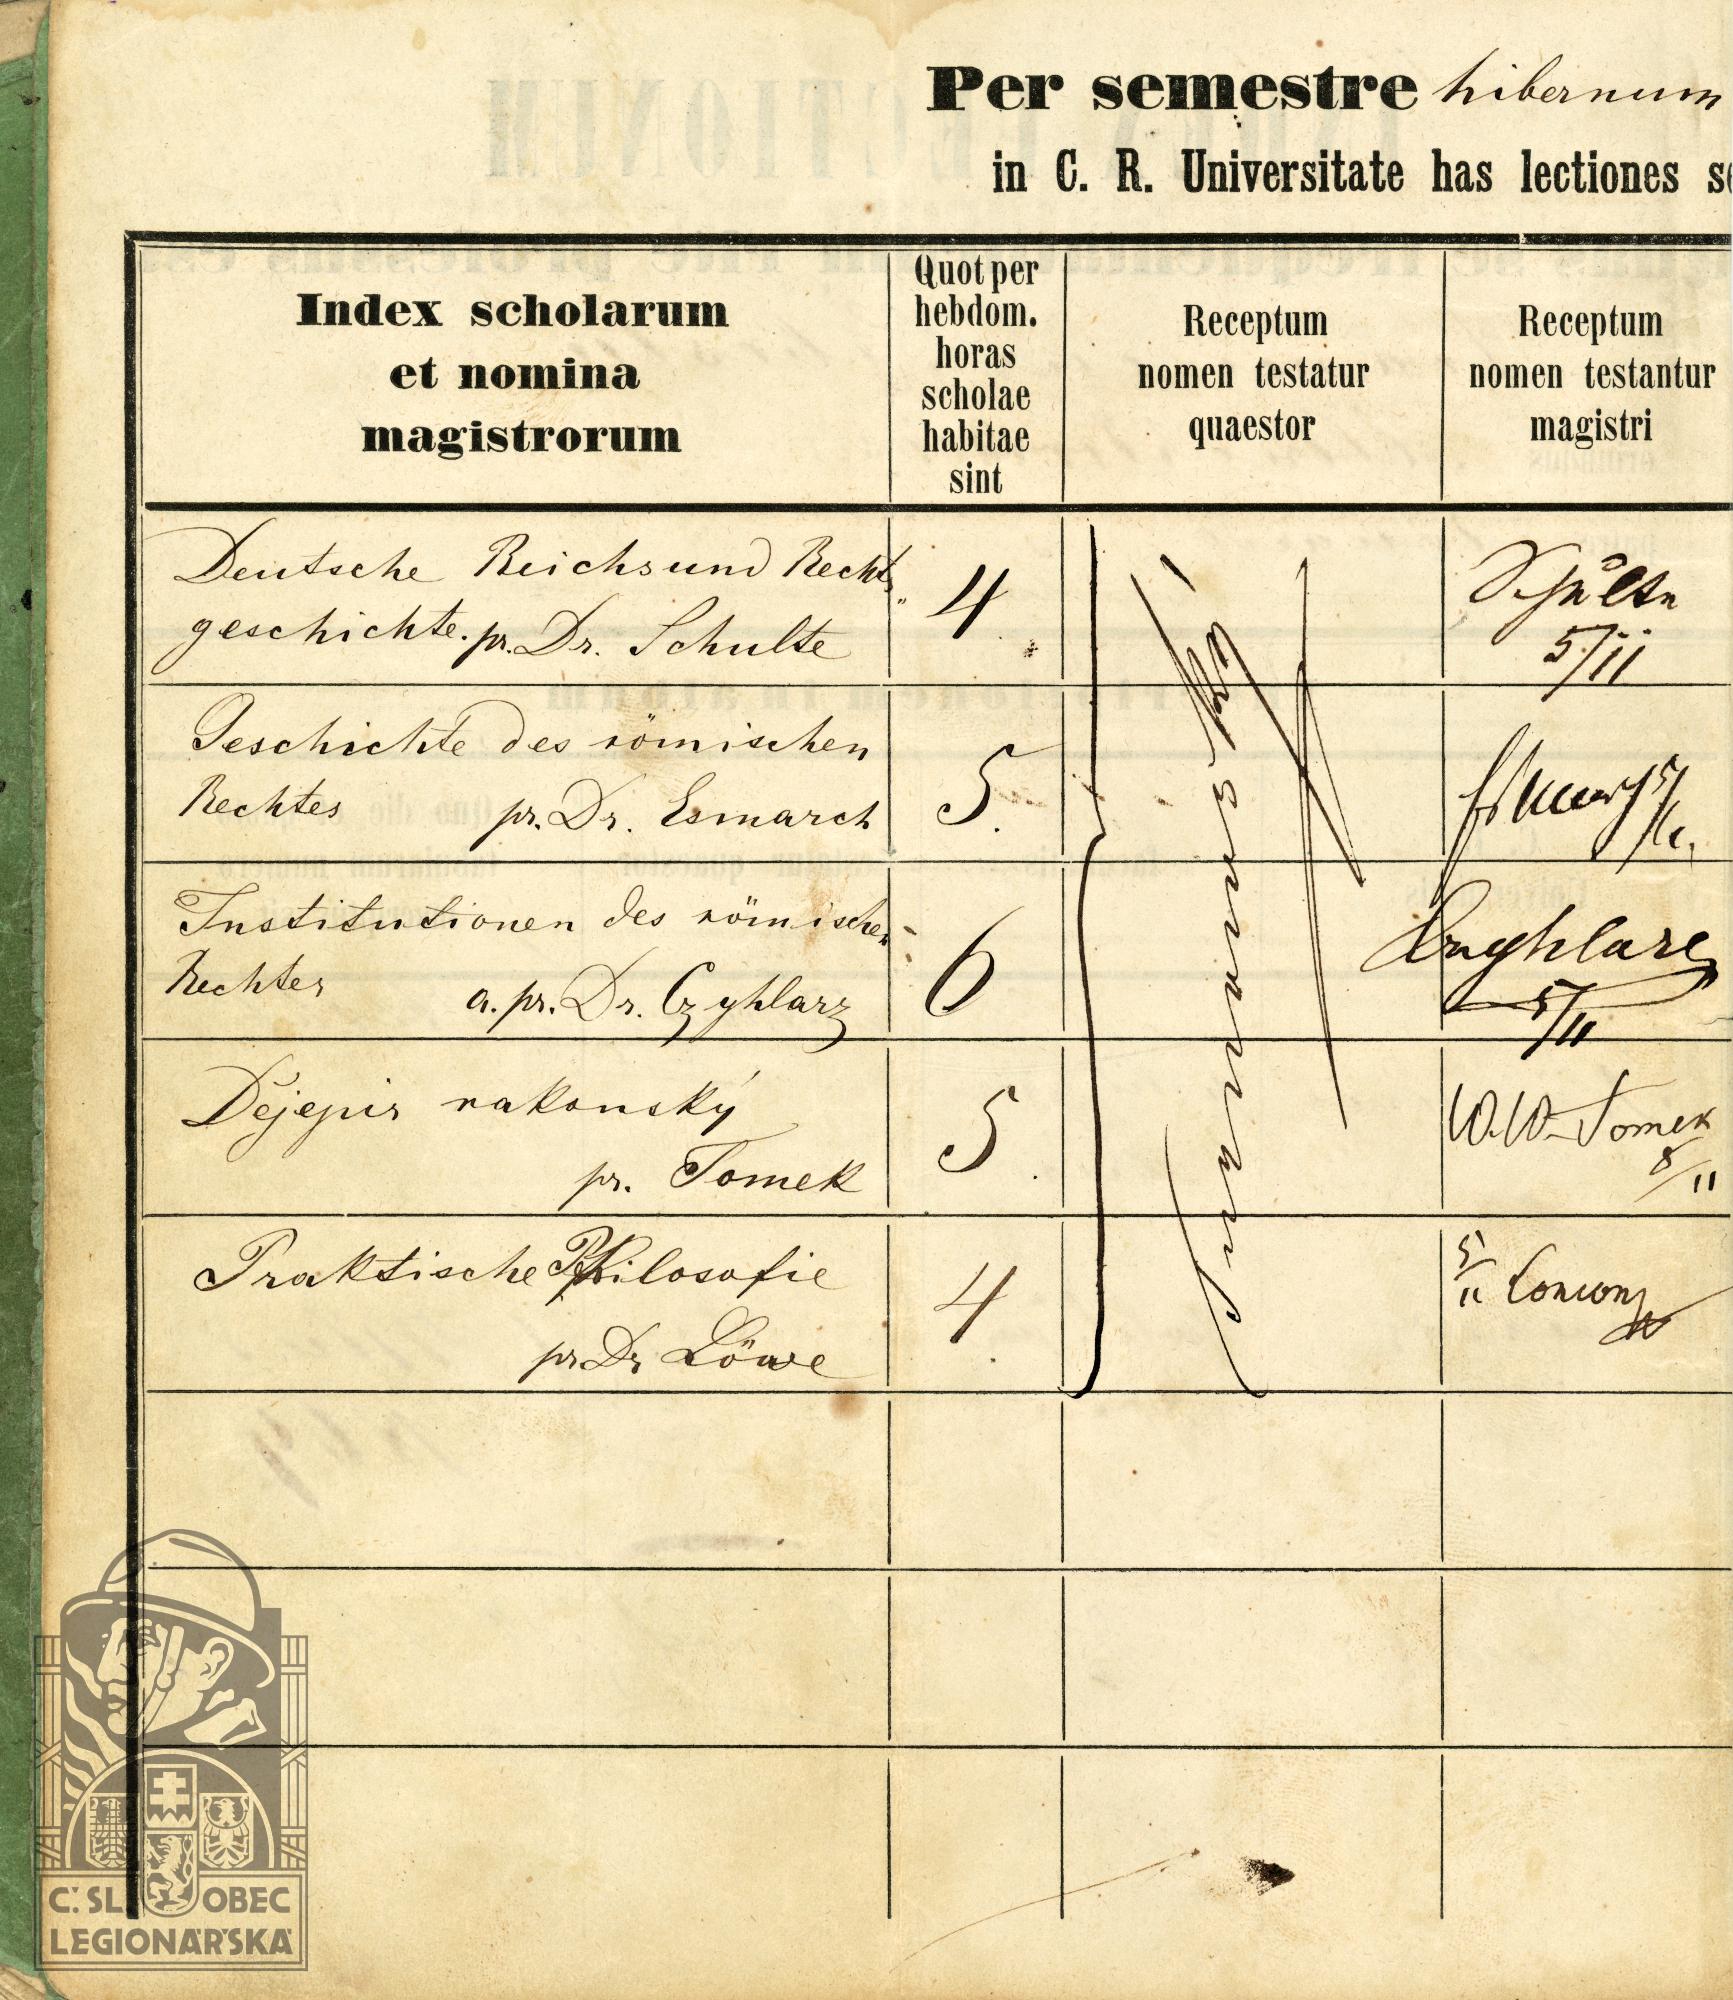 Per semestre hibernum
in C. R. Universitate has lectiones
Index scholarum
et nomina
magistrorum
Quot per
hebdom.
horas
scholae
habitae
sint
Receptum
nomen testatur
quaestor
Receptum
nomen testantur
magistri
Deutsche Reichs und Rechts
geschichte. pr. Dr. Schulte
4
Schulte
5/11
Geschichte des römischen
Rechtes pr. Dr. Esmarch
5
Esmarch 5/11
Institutionen des römischen
Rechtes a. pr. Dr. Czyhlarz
6
Czyhlarz
5/11
Dějepis rakouský
pr. Tomek
5
W. W. Tomek
8/11
Praktische Philosofie
pr Dr Löwe
4
5/11
Č. SL. OBEC
LEGIONÁŘSKÁ